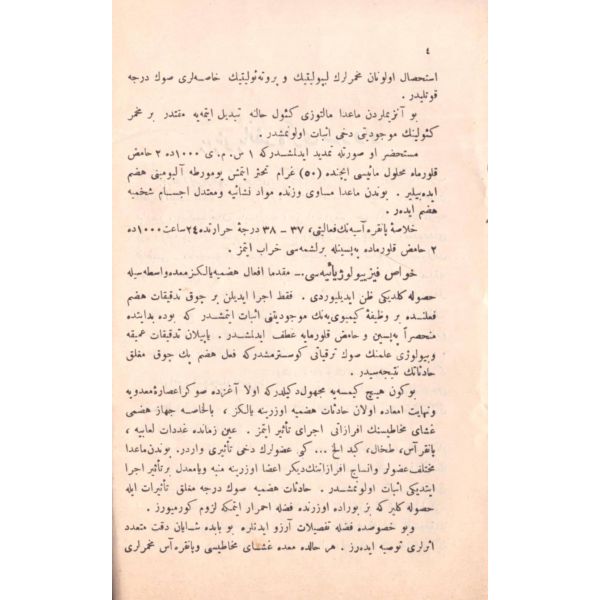 ٤
استحصال اولونان مخمرلرك ليپوليتيك و پروته‌ئوليتيك خاصه‌لرى صوك درجه
قوتليدر .
بو آنزيملردن ماعدا مالتوزى كئول حالنه تبديل ايتمه‌يه مقتدر بر مخمر
كئولينك موجوديتى دخى اثبات اولونمشدر .
مستحضر او صورتله تمديد ايدلمشدركه ١ س . م . ى ١٠٠٠ده ٢ حامض
قلورماه محلول مائيسى ايچنده (٥٠) غرام تخثر ايتمش يومورطه آلبومينى هضم
ايده‌بيلير . بوندن ماعدا مساوى وزنده مواد نشائيه ومعتدل اجسام شحميه
هضم ايده‌ر .
خلاصۀ پانقره‌آسيه‌نك فعاليتى، ٣٧ – ٣٨ درجۀ حرارتده ٢٤ ساعت ١٠٠٠ده
٢ حامض قلورماده په‌پسينله برلشمه‌سى خراب ايتمز .
خواص فيزيولوژيائيه‌سى .– مقدما افعال هضميه يالكز معده واسطه‌سيله
حصوله كلديكى ظن ايديليوردى . فقط اجرا ايديلن بر چوق تدقيقات هضم
فعلنده بر وظيفۀ كيميوى‌يه‌نك موجوديتنى اثبات ايتمشدر كه بوده بدايتده
منحصراً په‌پسين و حامض قلورمايه عطف ايدلمشدر . ياپيلان تدقيقات عميقه
وبيولوژى علمنك صوك ترقياتى كوسترمشدركه فعل هضم پك چوق مغلق
حادثاتك نتيجه‌سيدر .
بوكون هيچ كيمسه‌يه مجهول دكيلدركه اولا آغزده صوكرا عصارۀ معدويه
ونهايت امعاده اولان حادثات هضميه اوزرينه يالكز ، بالخاصه جهاز هضمى
غشاى مخاطيسنك افرازاتى اجراى تأثير ايتمز . عين زمانده غددات لعابيه ،
پانقره‌آس، طحال، كبد الخ ... كبى عضولرك دخى تأثيرى واردر. بوندن ماعدا
مختلف عضولر وانساج افرازاتنك ديكر اعضا اوزرينه منبه ويامعدل برتأثير اجرا
ايتديكى اثبات اولونمشدر . حادثات هضميه صوك درجه مغلق تأثيرات ايله
حصوله كلير كه بز بوراده اوزرنده فضله اصرار ايتمكه لزوم كورميورز .
وبو خصوصده فضله تفصيلات آرزو ايدنلره بو بابده شايان دقت متعدد
اثرلرى توصيه ايده‌رز . هر حالده معده غشاى مخاطيسى وپانقره‌آس مخمرلرى